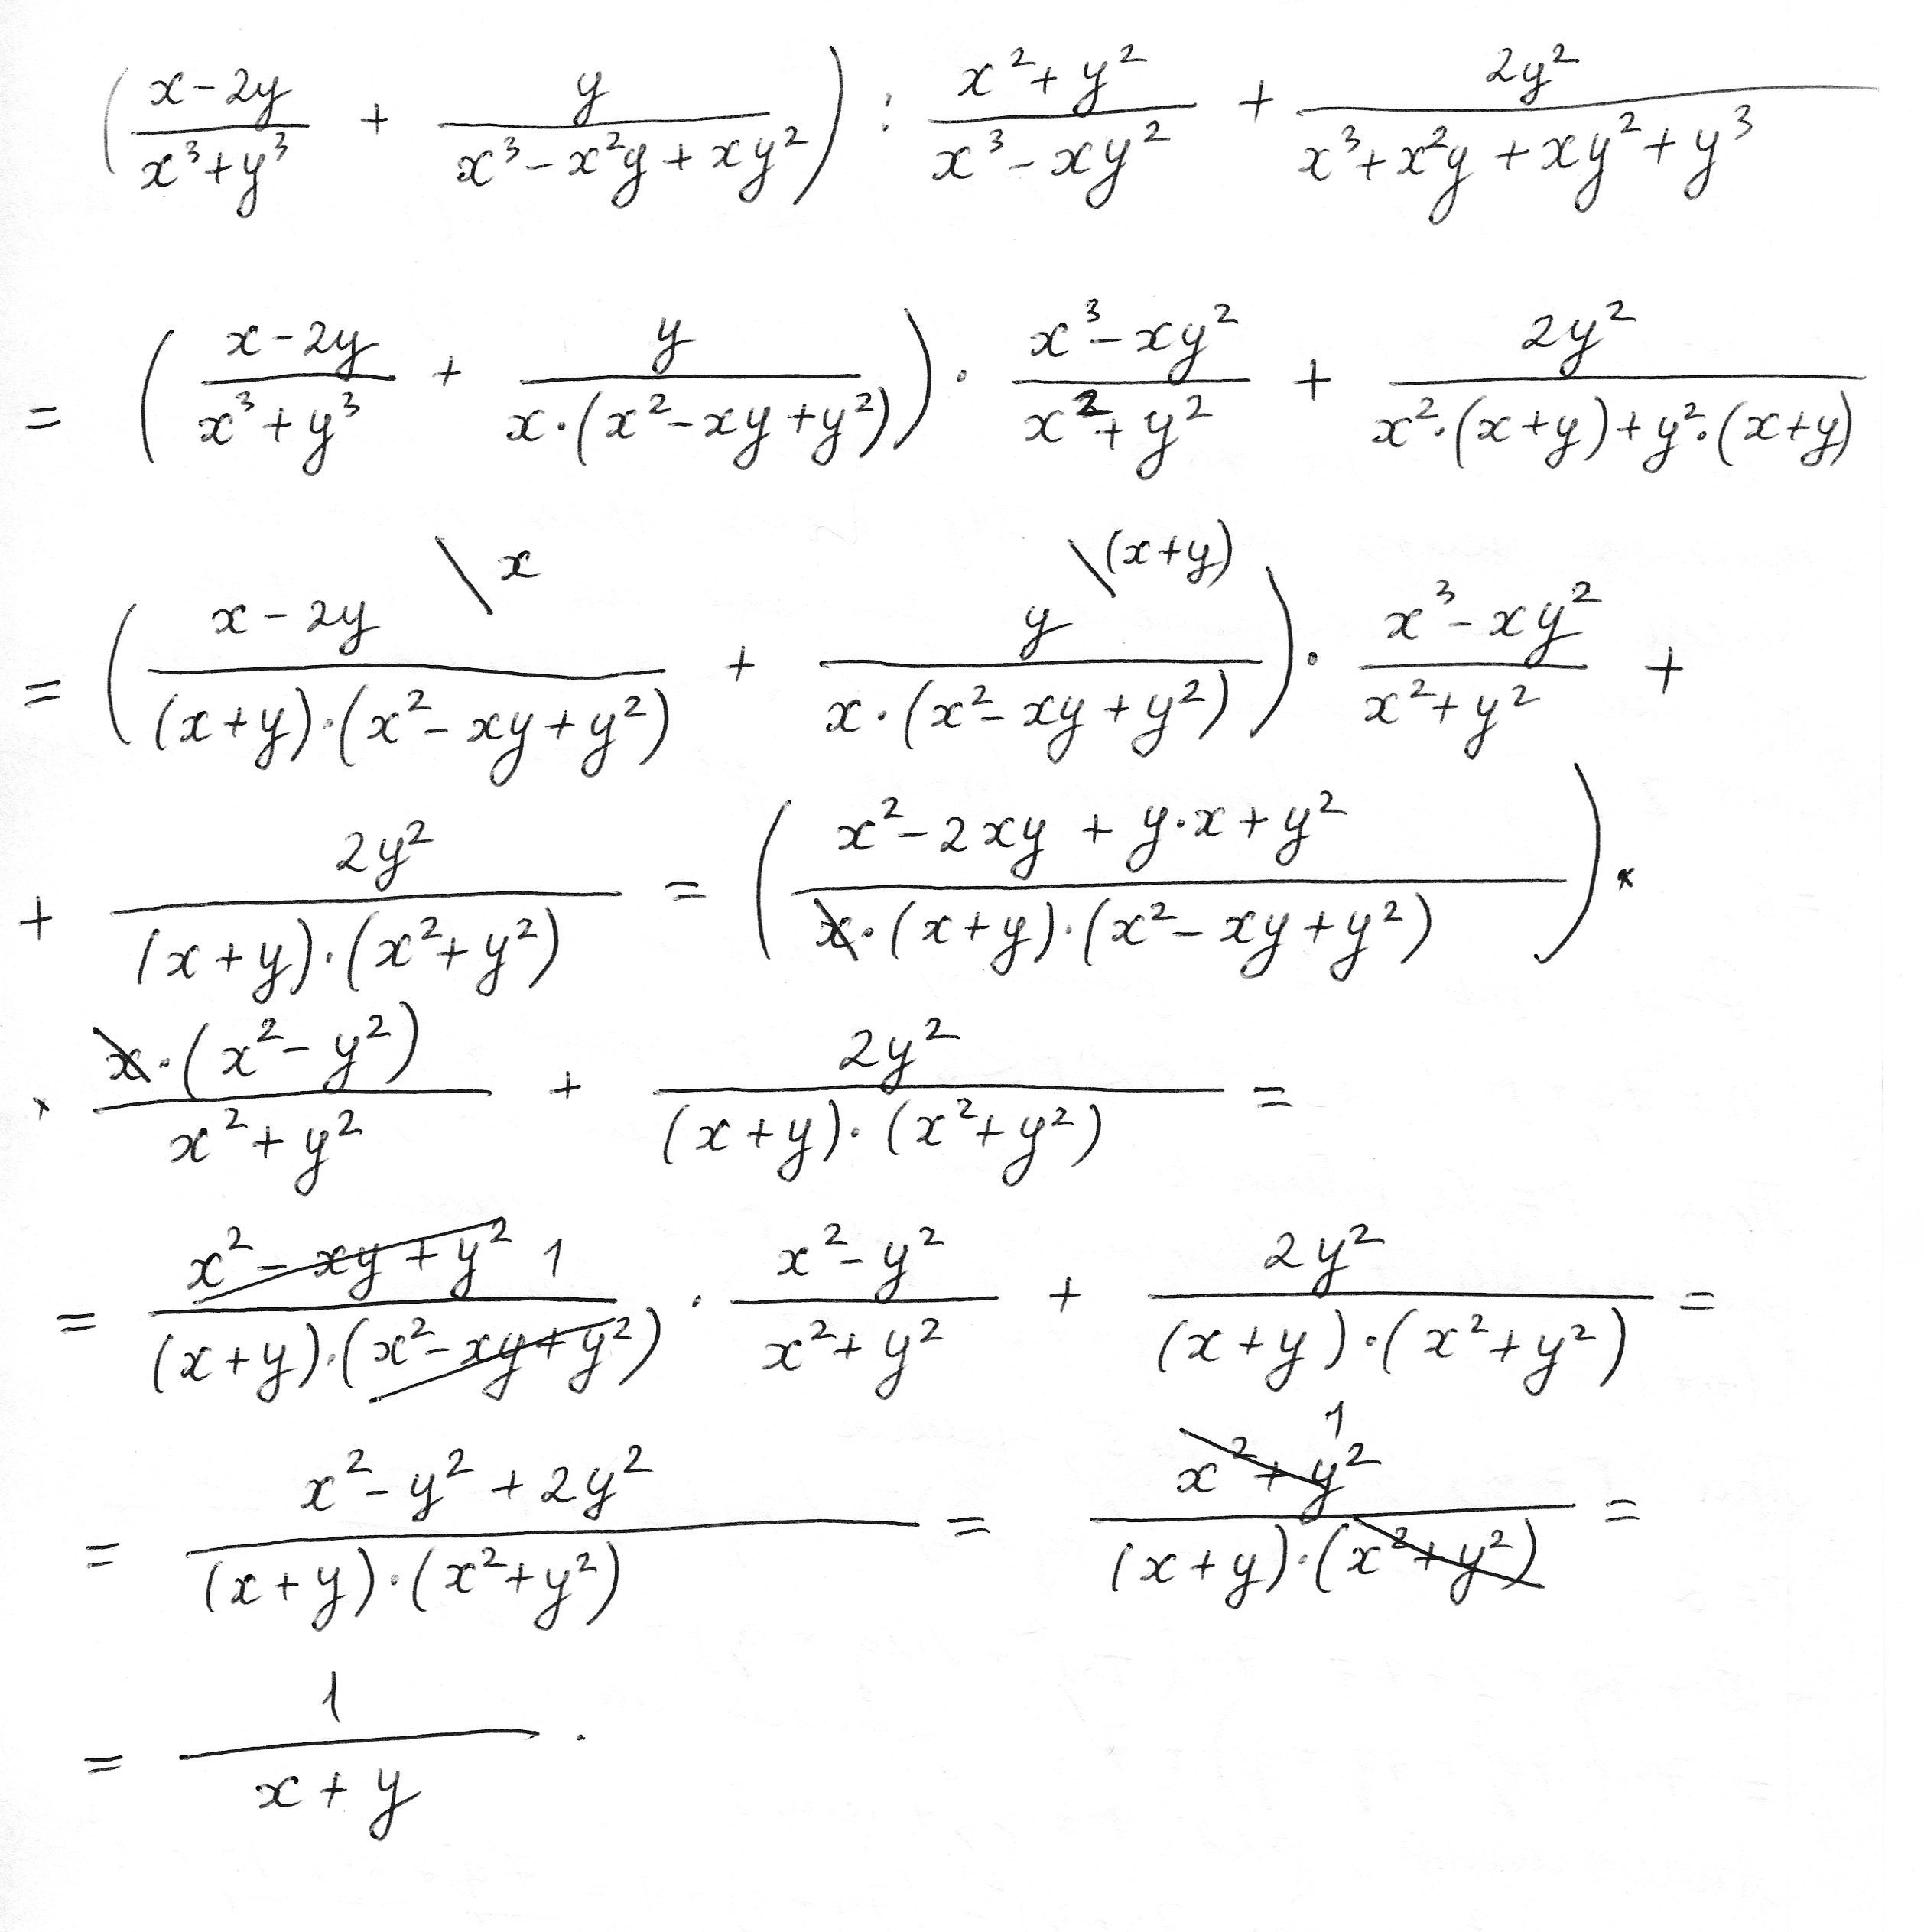 (\frac{x-2y}{x^3+y^3} + \frac{y}{x^3-x^2y+xy^2}) : \frac{x^2+y^2}{x^3-xy^2} + \frac{2y^2}{x^3+x^2y+xy^2+y^3}
= (\frac{x-2y}{x^3+y^3} + \frac{y}{x·(x^2-xy+y^2)}) · \frac{x^3-xy^2}{x^2+y^2} + \frac{2y^2}{x^2·(x+y)+y^2·(x+y)}
= (\frac{x-2y \x}{(x+y)·(x^2-xy+y^2)} + \frac{y \(x+y)}{x·(x^2-xy+y^2)}) · \frac{x^3-xy^2}{x^2+y^2} +
+ \frac{2y^2}{(x+y)·(x^2+y^2)} = (\frac{x^2-2xy+y·x+y^2}{x·(x+y)·(x^2-xy+y^2)}) ×
× \frac{x·(x^2-y^2)}{x^2+y^2} + \frac{2y^2}{(x+y)·(x^2+y^2)} =
= \frac{x^2-xy+y^2 1}{(x+y)·(x^2-xy+y^2)} · \frac{x^2-y^2}{x^2+y^2} + \frac{2y^2}{(x+y)·(x^2+y^2)} =
= \frac{x^2-y^2+2y^2}{(x+y)·(x^2+y^2)} = \frac{x^2+y^2 1}{(x+y)·(x^2+y^2)} =
= \frac{1}{x+y} .